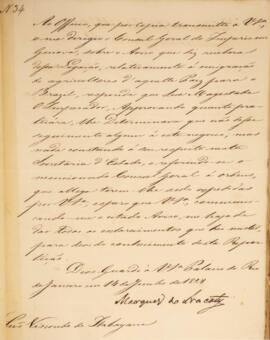 Nº 34
Ao Officio, que por copia transmittio a V. Sª
o Consul Geral do Imperio em
sobre o Aviso que lhe
Legação, relativamente á emigração
de agricultores d'aquelle Paiz para o
Brazil, respondi que Sua Magestade
O Imperador, Approvando quanto pra-
ticára, lhe determinava que não désse
seguimento algum a este negocio, mas
nada constando a tal respeito nesta
Secretaria d'Estado, e referindo-se o
mencionado Consul Geral á ordens,
que allega terem-lhe sido expedidas
por V. Sª, espero que V. Sª, communi-
cando-me o citado Aviso, me haja de
dar todos os esclarecimentos que
para devido conhecimento desta Repar-
tição.
Deos Guarde a V. Sª Palacio do Rio
de Janeiro em 14 de Junho de 1828
Marquez do Aracaty
Snr Visconde de Itabayana